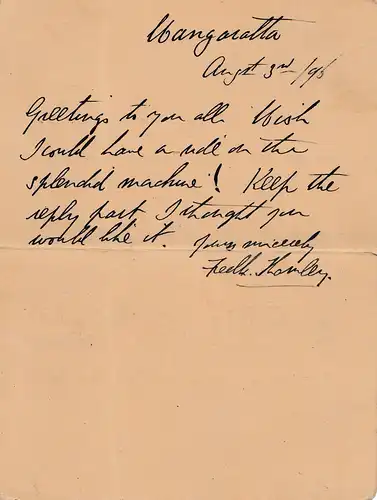 Wangaratta
Augst 3rd /96
Greetings to you all Wish
I could have a ride on the
splendid machine! Keep the
reply part I thought you
would like it. Yours sincerely
Fredk. Hamley.